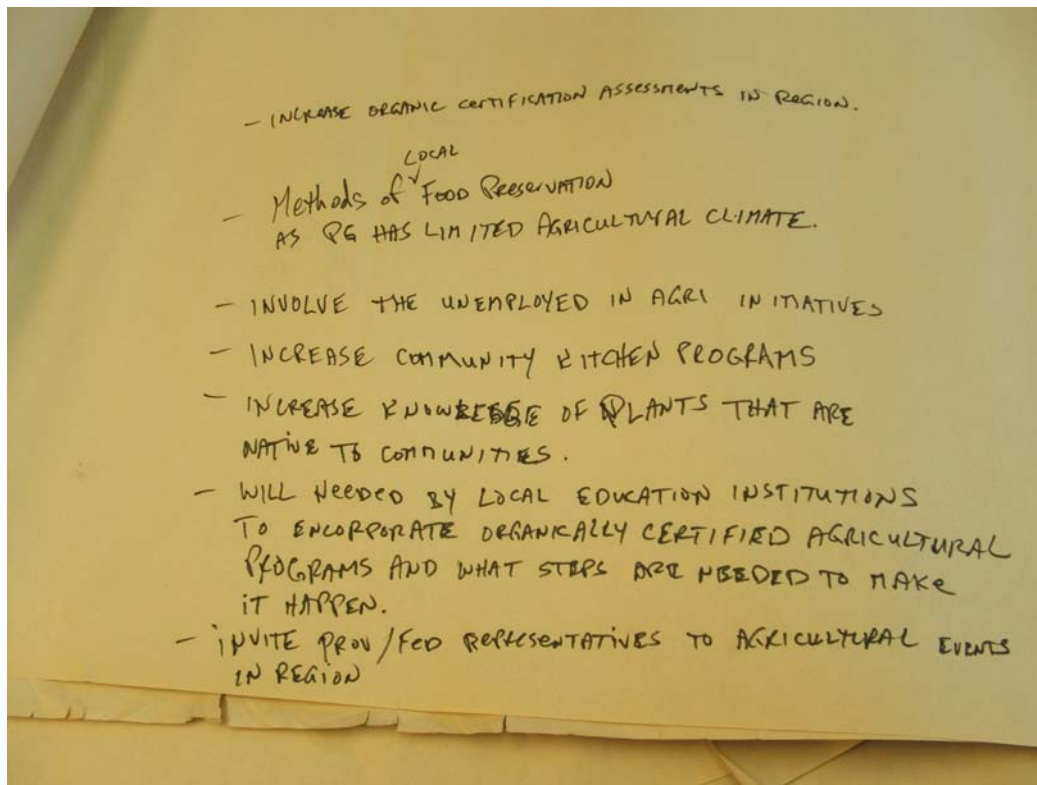 - INCREASE ORGANIC CERTIFICATION ASSESSMENTS IN REGION.
LOCAL
- Methods of Food Preservation
AS PG HAS LIMITED AGRICULTURAL CLIMATE.
- INVOLVE THE UNEMPLOYED IN AGRI INITIATIVES
- INCREASE COMMUNITY KITCHEN PROGRAMS
- INCREASE KNOWLEDGE OF PLANTS THAT ARE
NATIVE TO COMMUNITIES.
- WILL NEEDED BY LOCAL EDUCATION INSTITUTIONS
TO ENCORPORATE ORGANICALLY CERTIFIED AGRICULTURAL
PROGRAMS AND WHAT STEPS ARE NEEDED TO MAKE
IT HAPPEN.
- INVITE PROV/FED REPRESENTATIVES TO AGRICULTURAL EVENTS
IN REGION